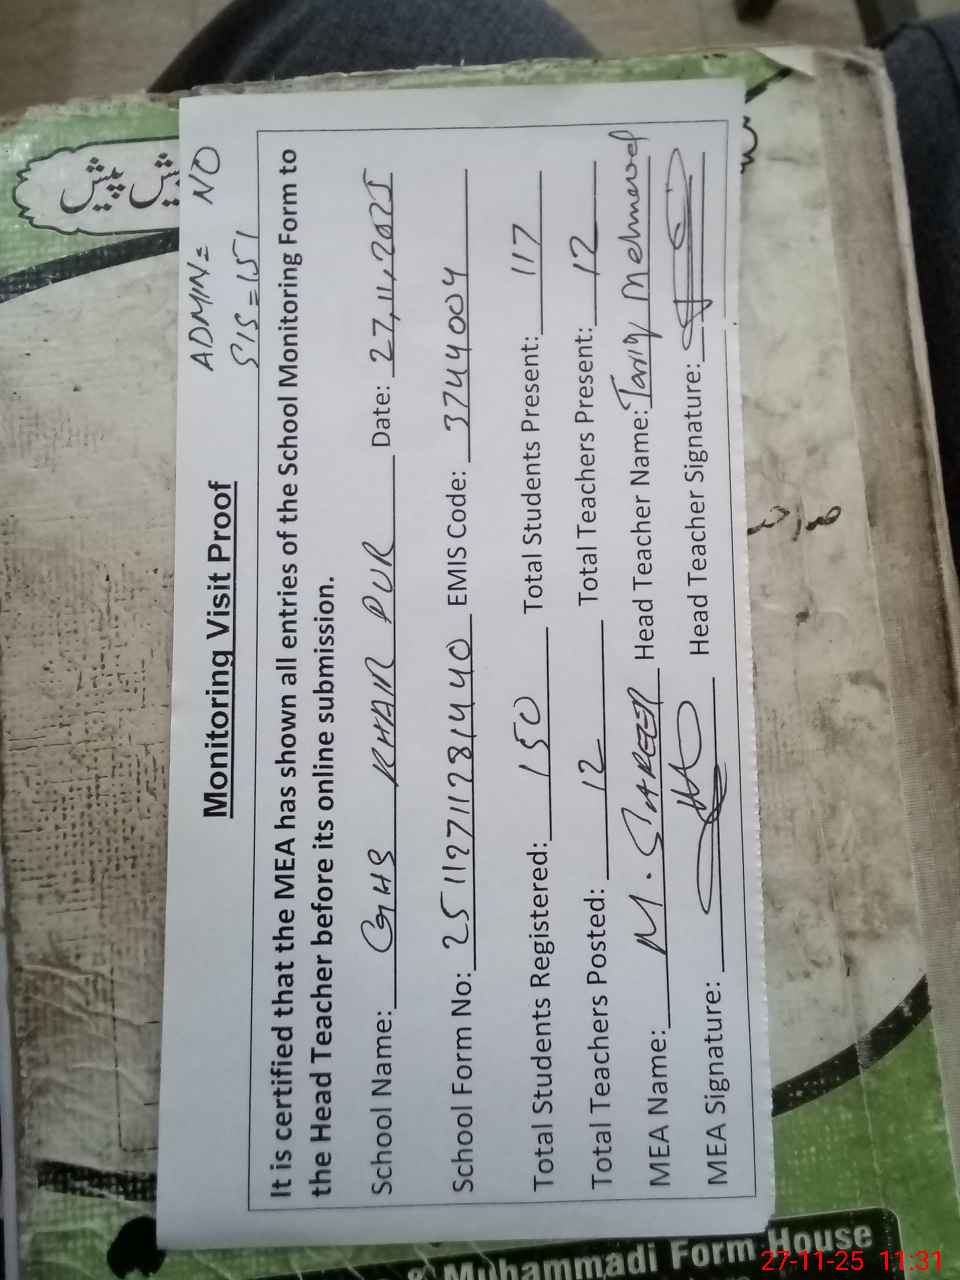 ADMIN = NO
SIS = 151
Monitoring Visit Proof
It is certified that the MEA has shown all entries of the School Monitoring Form to
the Head Teacher before its online submission.
School Name: GHS KHAIR PUR Date: 27,11,2025
School Form No: 251127112781440 EMIS Code: 37444004
Total Students Registered: 150 Total Students Present: 117
Total Teachers Posted: 12 Total Teachers Present: 12
MEA Name: M. SAREER Head Teacher Name: Tariq Mehmood
MEA Signature: Head Teacher Signature:
پیش
& Muhammadi Form House
27-11-25 11:31